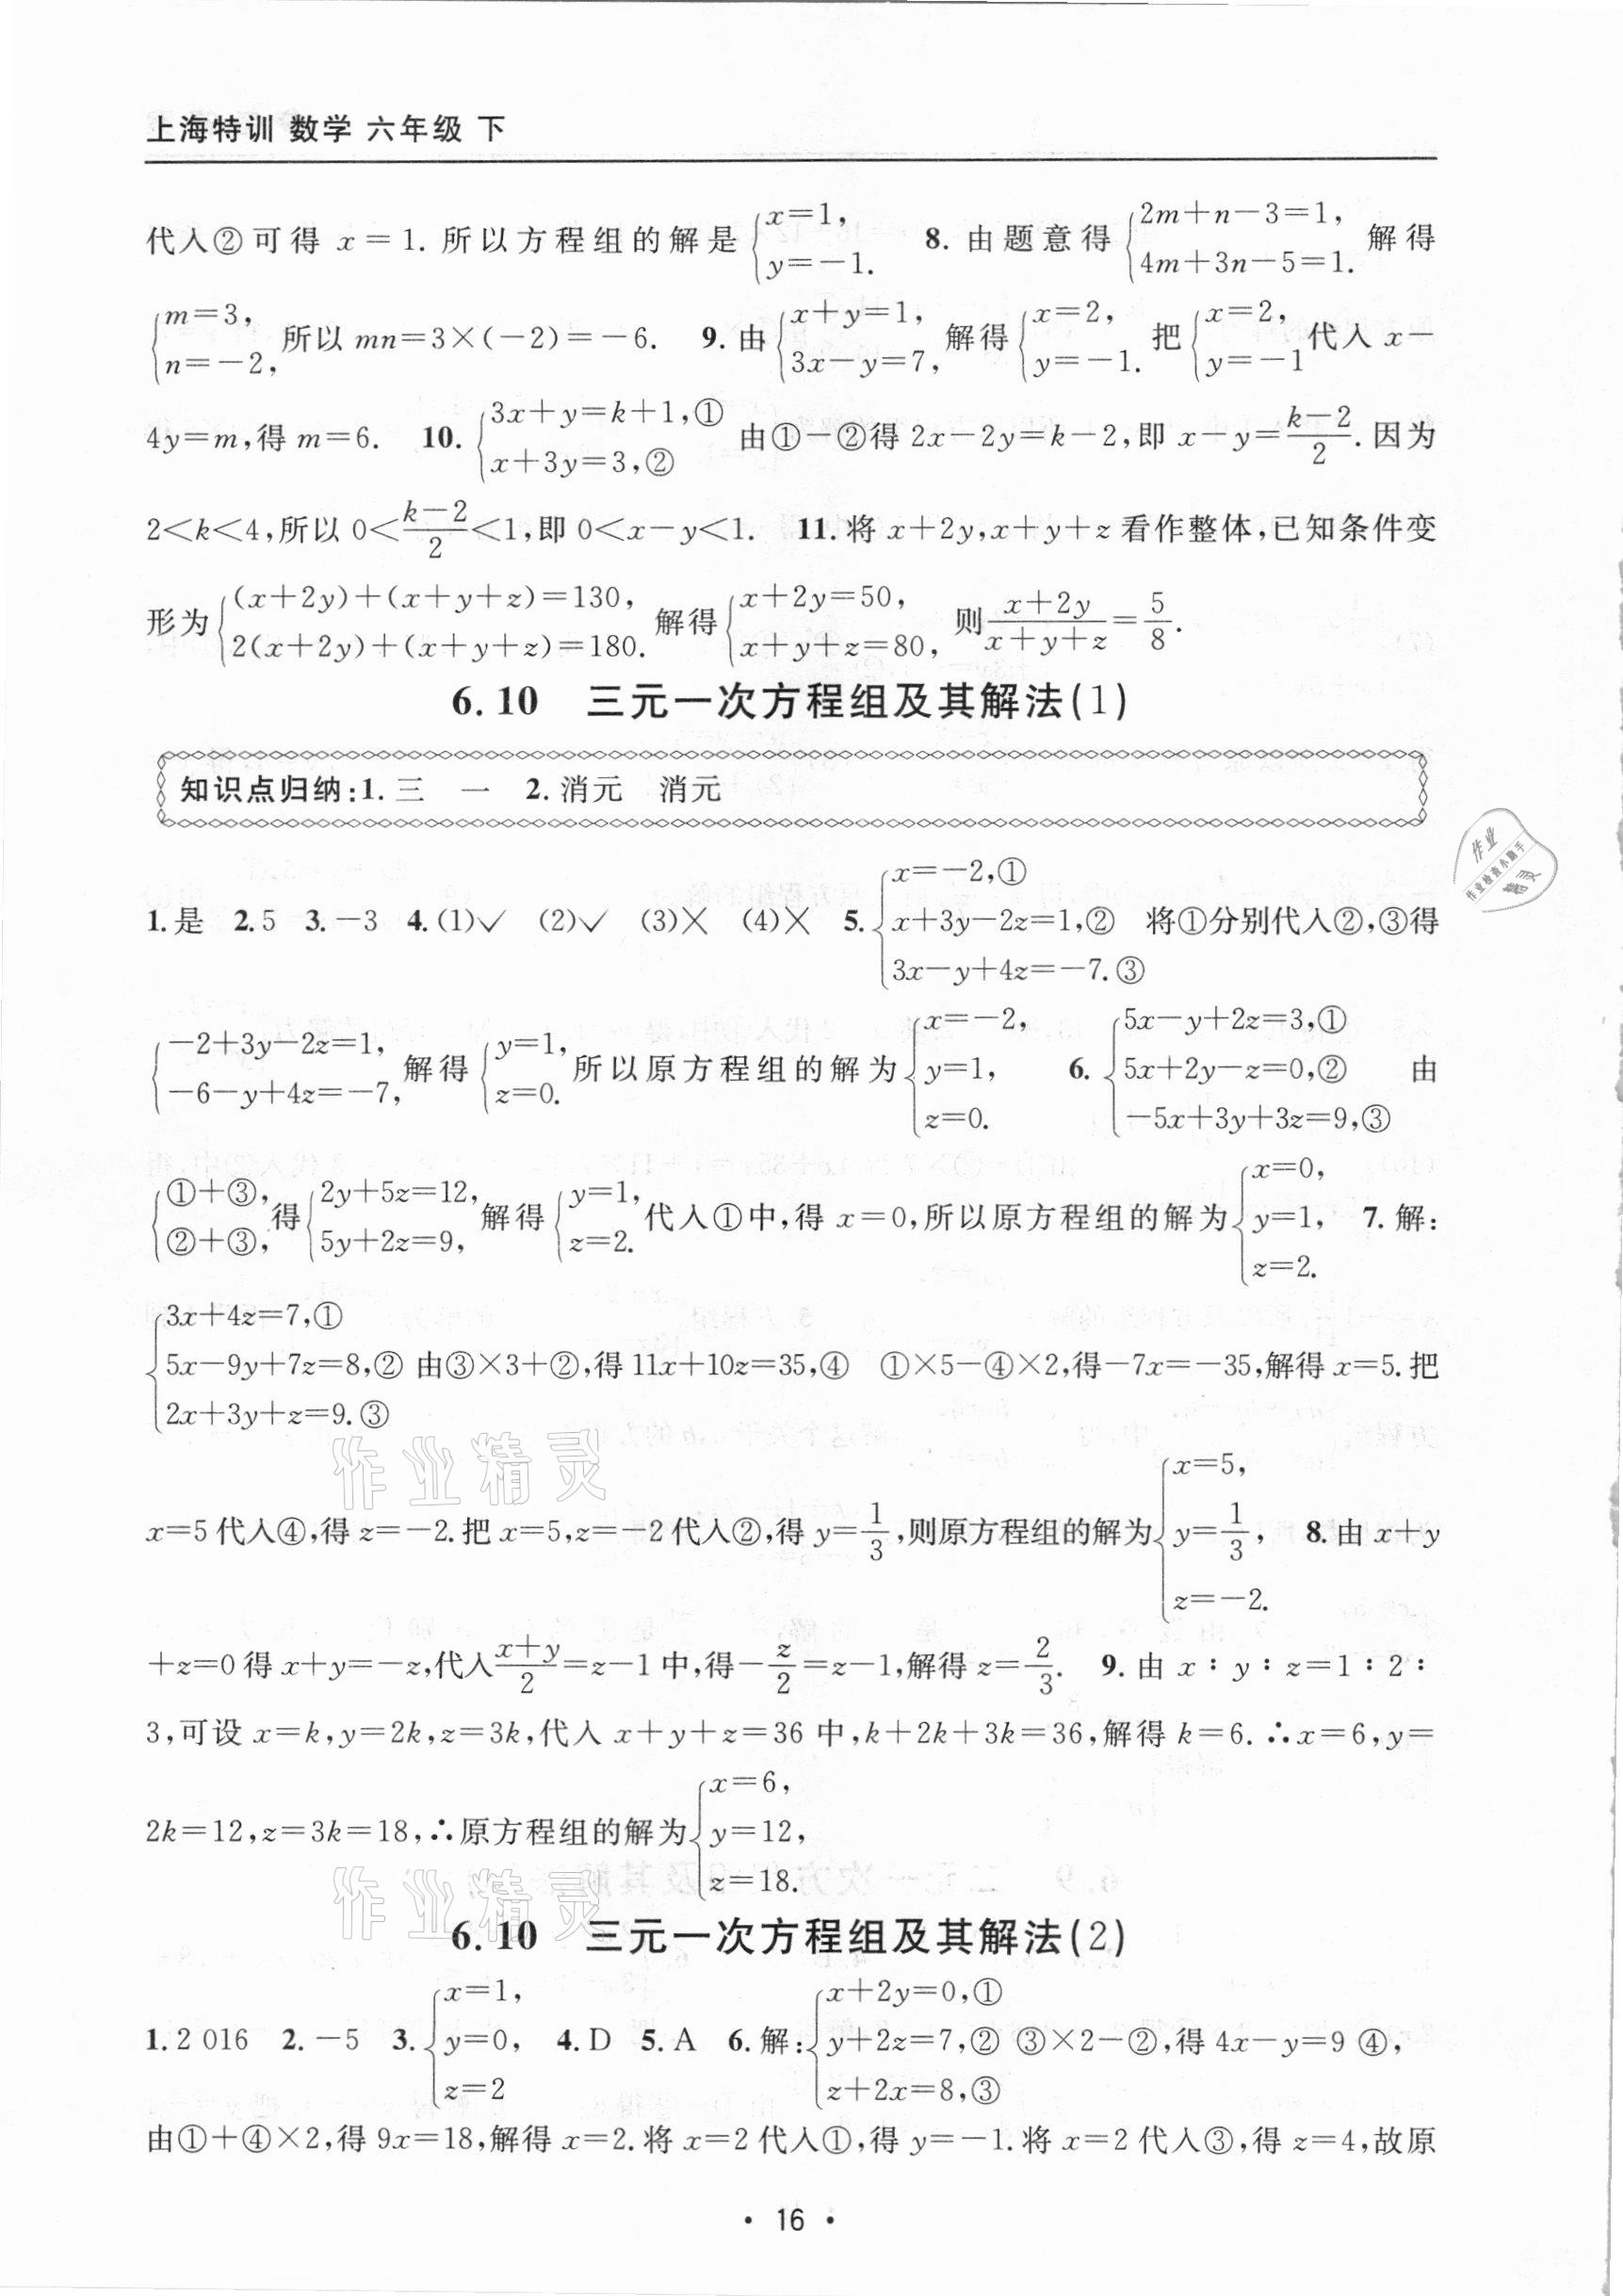 上海特训 数学 六年级 下
代入②可得 x=1. 所以方程组的解是{x=1, y=-1. 8. 由题意得{2m+n-3=1, 4m+3n-5=1. 解得
{m=3, n=-2, 所以 mn=3×(-2)=-6. 9. 由{x+y=1, 3x-y=7, 解得{x=2, y=-1. 把{x=2, y=-1 代入 x-
4y=m,得 m=6. 10. {3x+y=k+1,① x+3y=3,② 由①-②得 2x-2y=k-2,即 x-y=(k-2)/2.因为
2<k<4,所以 0<(k-2)/2<1,即 0<x-y<1. 11. 将 x+2y,x+y+z 看作整体,已知条件变
形为{(x+2y)+(x+y+z)=130, 2(x+2y)+(x+y+z)=180. 解得{x+2y=50, x+y+z=80, 则(x+2y)/(x+y+z)=5/8.
6.10 三元一次方程组及其解法(1)
知识点归纳:1. 三 一 2. 消元 消元
1. 是 2. 5 3. -3 4. (1)✓ (2)✓ (3)× (4)× 5. {x=-2,① x+3y-2z=1,② 3x-y+4z=-7.③ 将①分别代入②,③得
{-2+3y-2z=1, -6-y+4z=-7, 解得{y=1, z=0. 所以原方程组的解为{x=-2, y=1, z=0. 6. {5x-y+2z=3,① 5x+2y-z=0,② -5x+3y+3z=9,③ 由
{①+③, ②+③, 得{2y+5z=12, 5y+2z=9, 解得{y=1, z=2. 代入①中,得 x=0,所以原方程组的解为{x=0, y=1, z=2. 7. 解:
{3x+4z=7,① 5x-9y+7z=8,② 2x+3y+z=9.③ 由③×3+②,得 11x+10z=35,④ ①×5-④×2,得-7x=-35,解得 x=5. 把
x=5 代入④,得 z=-2. 把 x=5,z=-2 代入②,得 y=1/3,则原方程组的解为{x=5, y=1/3, z=-2. 8. 由 x+y
+z=0 得 x+y=-z,代入(x+y)/2=z-1 中,得-z/2=z-1,解得 z=2/3. 9. 由 x∶y∶z=1∶2∶
3,可设 x=k,y=2k,z=3k,代入 x+y+z=36 中,k+2k+3k=36,解得 k=6. ∴x=6,y=
2k=12,z=3k=18,∴原方程组的解为{x=6, y=12, z=18.
6.10 三元一次方程组及其解法(2)
1. 2 016 2. -5 3. {x=1, y=0, z=2 4. D 5. A 6. 解:{x+2y=0,① y+2z=7,② z+2x=8,③ ③×2-②,得 4x-y=9 ④,
由①+④×2,得 9x=18,解得 x=2. 将 x=2 代入①,得 y=-1. 将 x=2 代入③,得 z=4,故原
• 16 •
作业
作业检查小助手
精灵
作业精灵
作业精灵